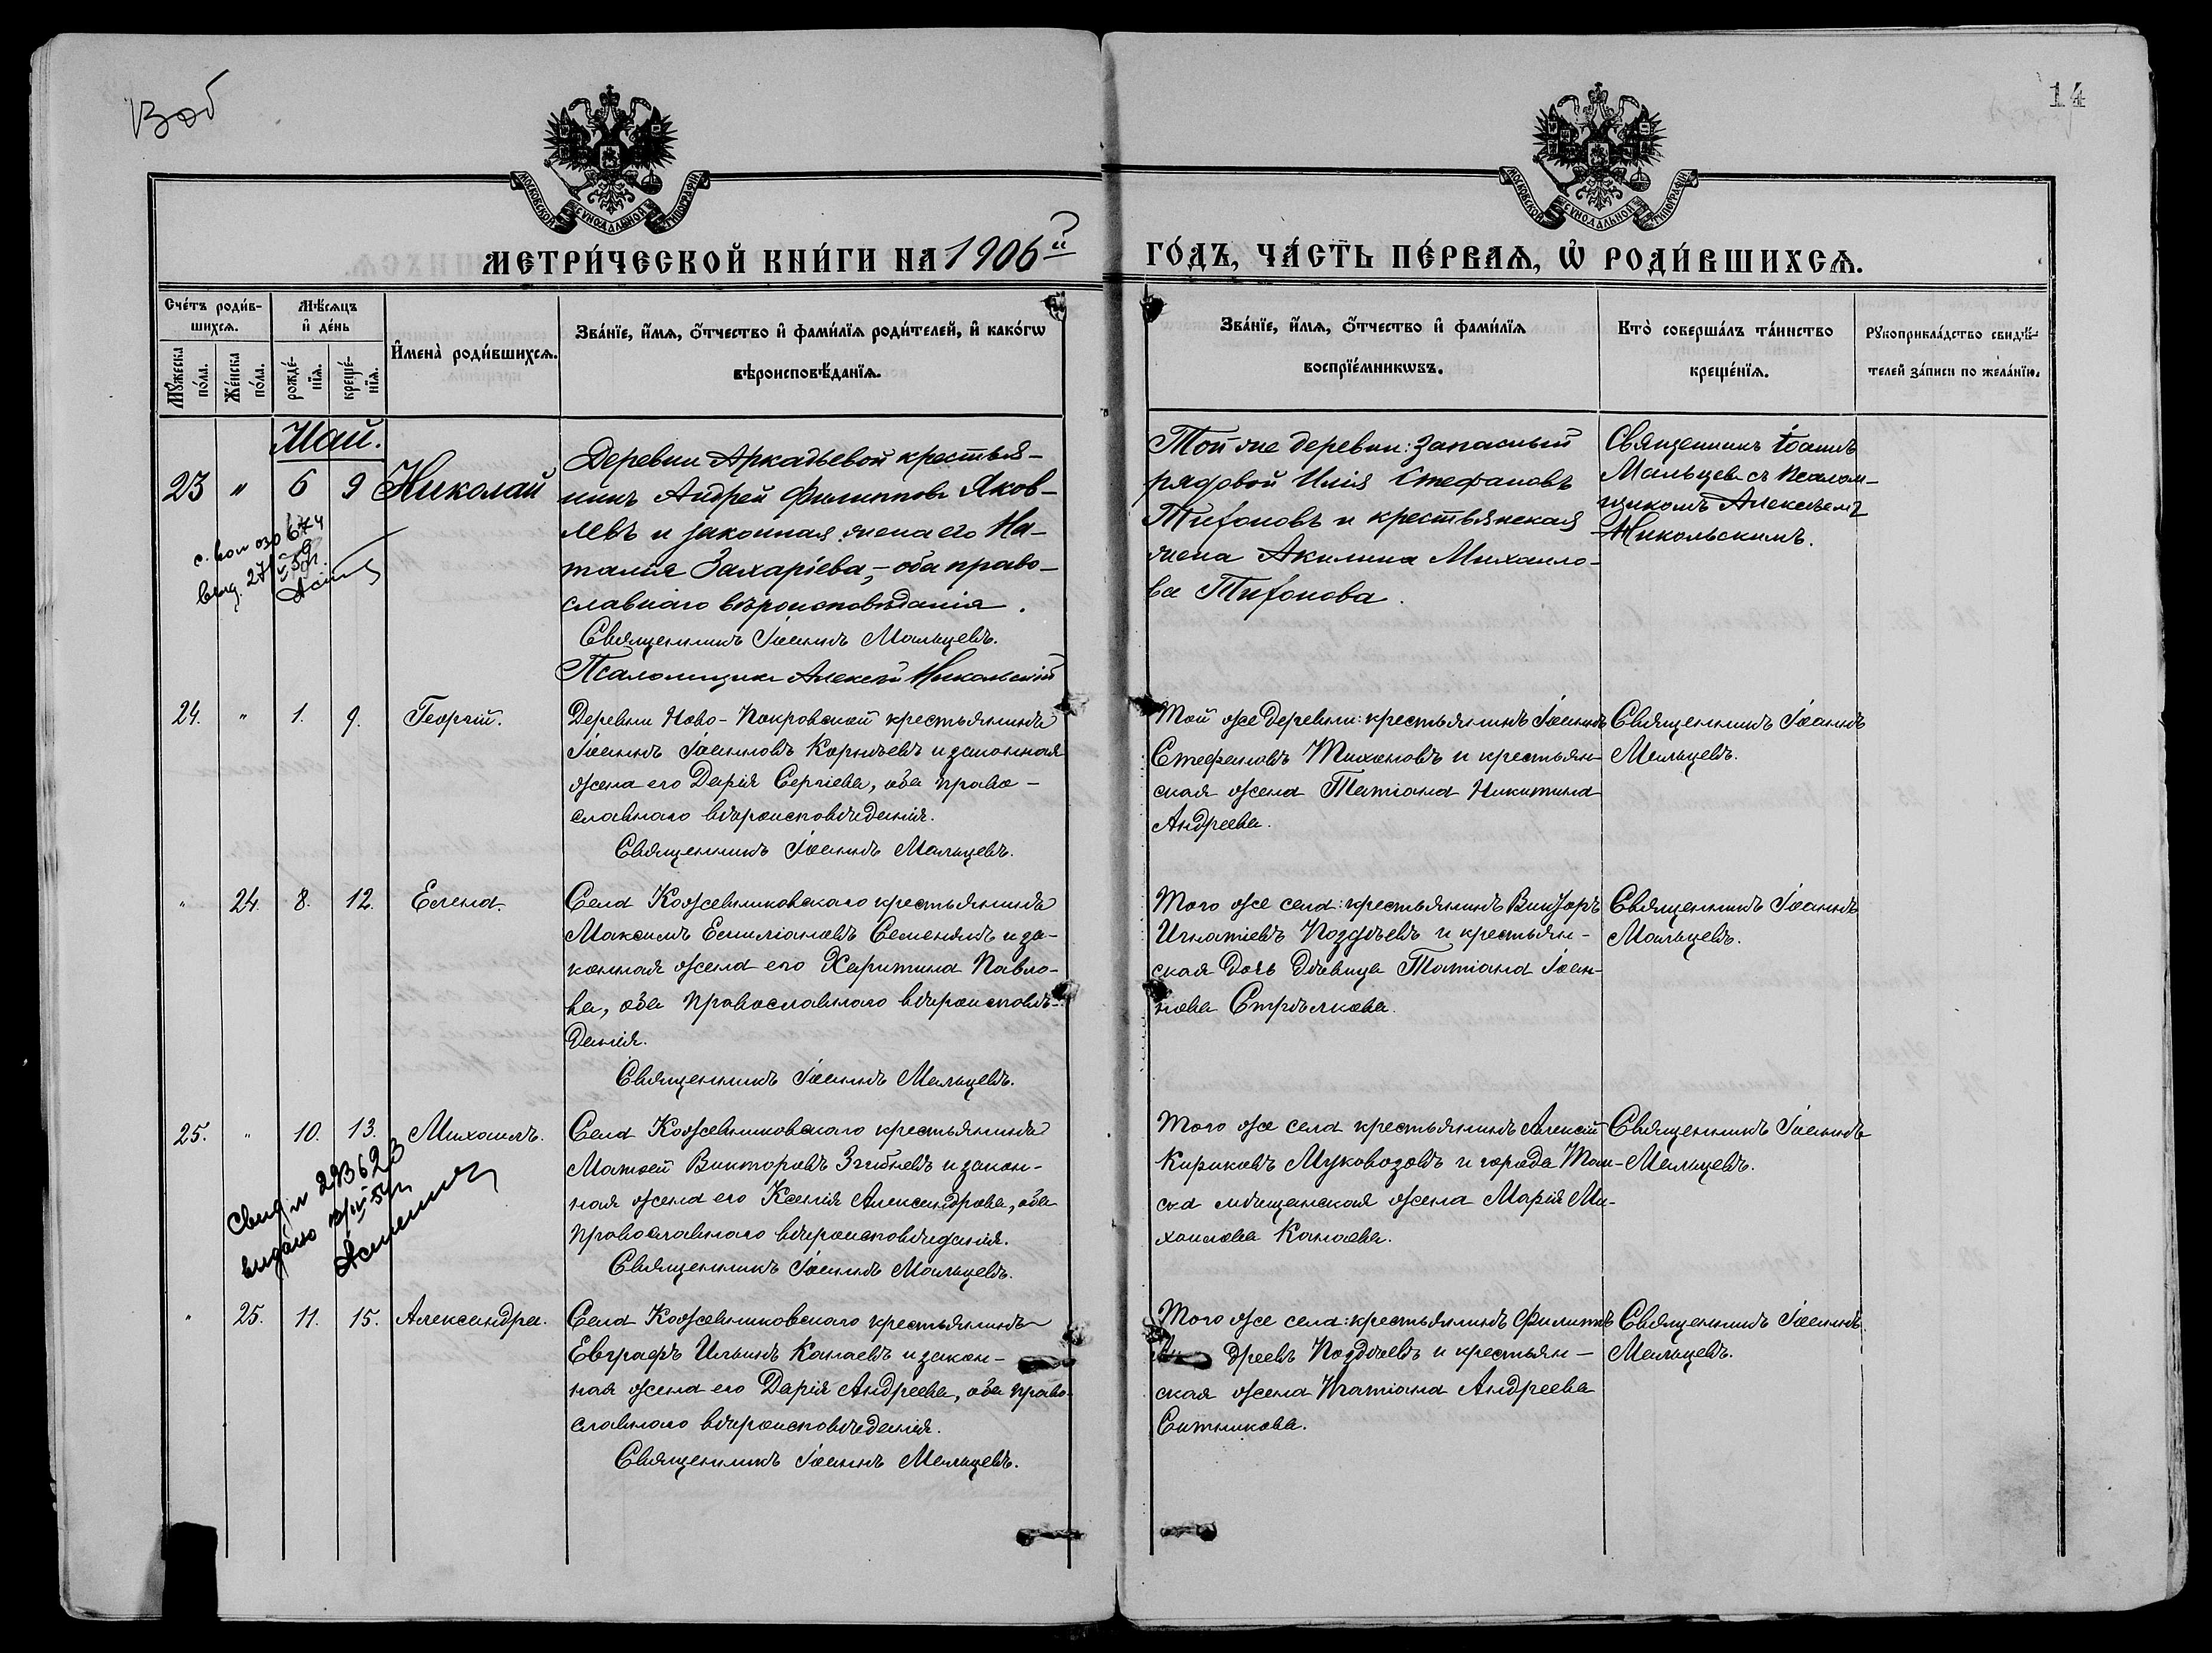 14
МОСКОВСКОЙ СѴНОДАЛЬНОЙ ТИПОГРАФІИ
МОСКОВСКОЙ СѴНОДАЛЬНОЙ ТИПОГРАФІИ
МЕТРИ́ЧЕСКОЙ КНИ́ГИ НА 1906й ГО́ДЪ, ЧА́СТЬ ПЕ́РВАѦ, Ѡ҆ РОДИ́ВШИХСѦ.
Сче́тъ роди́в-
шихсѧ.
Мѣ́сѧцъ
и҆ де́нь
И҆мена̀ роди́вшихсѧ.
Зва́нїе, и҆́мѧ, ѻ҆́тчество и҆ фами́лїѧ роди́телей, и҆ како́гѡ
вѣроисповѣ́данїѧ.
Зва́нїе, и҆́мѧ, ѻ҆́тчество и҆ фами́лїѧ
воспрїе́мникѡвъ.
Кто̀ соверша́лъ та́инство
креще́нїѧ.
Рꙋкоприкла́дство свидѣ́-
телей за́писи по жела́нїю.
Мꙋ́жеска
по́ла.
Же́нска
по́ла.
рожде́-
нїѧ.
креще́-
нїѧ.
Май.
23 " 6 9 Николай
Деревни Аркадьевой крестья-
нинъ Андрей Филипповъ Яков-
левъ и законная жена его На-
талия Захаріева,- оба право-
славнаго вѣроисповѣданія.
Священникъ Іоаннъ Мальцевъ.
Псаломщикъ Алексѣй Никольскій
Той же деревни: запасный
рядовой Илія Стефановъ
Тихоновъ и крестьянская
жена Акилина Михаило-
ва Тихонова.
Священникъ Іоаннъ
Мальцевъ съ псалом-
щикомъ Алексѣемъ
Никольскимъ.
24. " 1. 9. Георгій.
Деревни Ново-Покровской крестьянинъ
Іоаннъ Іоанновъ Корнѣевъ и законная
жена его Дарія Сергіева, оба право-
славнаго вѣроисповѣданія.
Священникъ Іоаннъ Мальцевъ.
Той же деревни: крестьянинъ Іоаннъ
Стефановъ Тихоновъ и крестьян-
ская жена Татіана Никитина
Андреева.
Священникъ Іоаннъ
Мальцевъ.
" 24. 8. 12. Елена.
Села Кожевниковскаго крестьянинъ
Максимъ Емиліановъ Семенякъ и за-
конная жена его Харитина Павло-
ва, оба православнаго вѣроисповѣ-
данія.
Священникъ Іоаннъ Мальцевъ.
Того же села: крестьянинъ Викторъ
Игнатіевъ Поздѣевъ и крестьян-
ская дочь дѣвица Татіана Іоан-
нова Стрѣлкова.
Священникъ Іоаннъ
Мальцевъ.
25. " 10. 13. Михаилъ.
Свид № 293623
выдано
Села Кожевниковскаго крестьянинъ
Матѳей Викторовъ Згибневъ и закон-
ная жена его Ксенія Александрова, оба
православнаго вѣроисповѣданія.
Священникъ Іоаннъ Мальцевъ.
Того же села крестьянинъ Алексѣй
Кириковъ Муковозовъ и города Том-
ска мѣщанская жена Марія Ми-
хаилова Канаева.
Священникъ Іоаннъ
Мальцевъ.
" 25. 11. 15. Александра.
Села Кожевниковскаго крестьянинъ
Евграфъ Ильинъ Канаевъ и закон-
ная жена его Дарія Андреева, оба право-
славнаго вѣроисповѣданія.
Священникъ Іоаннъ Мальцевъ.
Того же села: крестьянинъ Филиппъ
Андреевъ Поздѣевъ и крестьян-
ская жена Татіана Андреева
Ситникова.
Священникъ Іоаннъ
Мальцевъ.